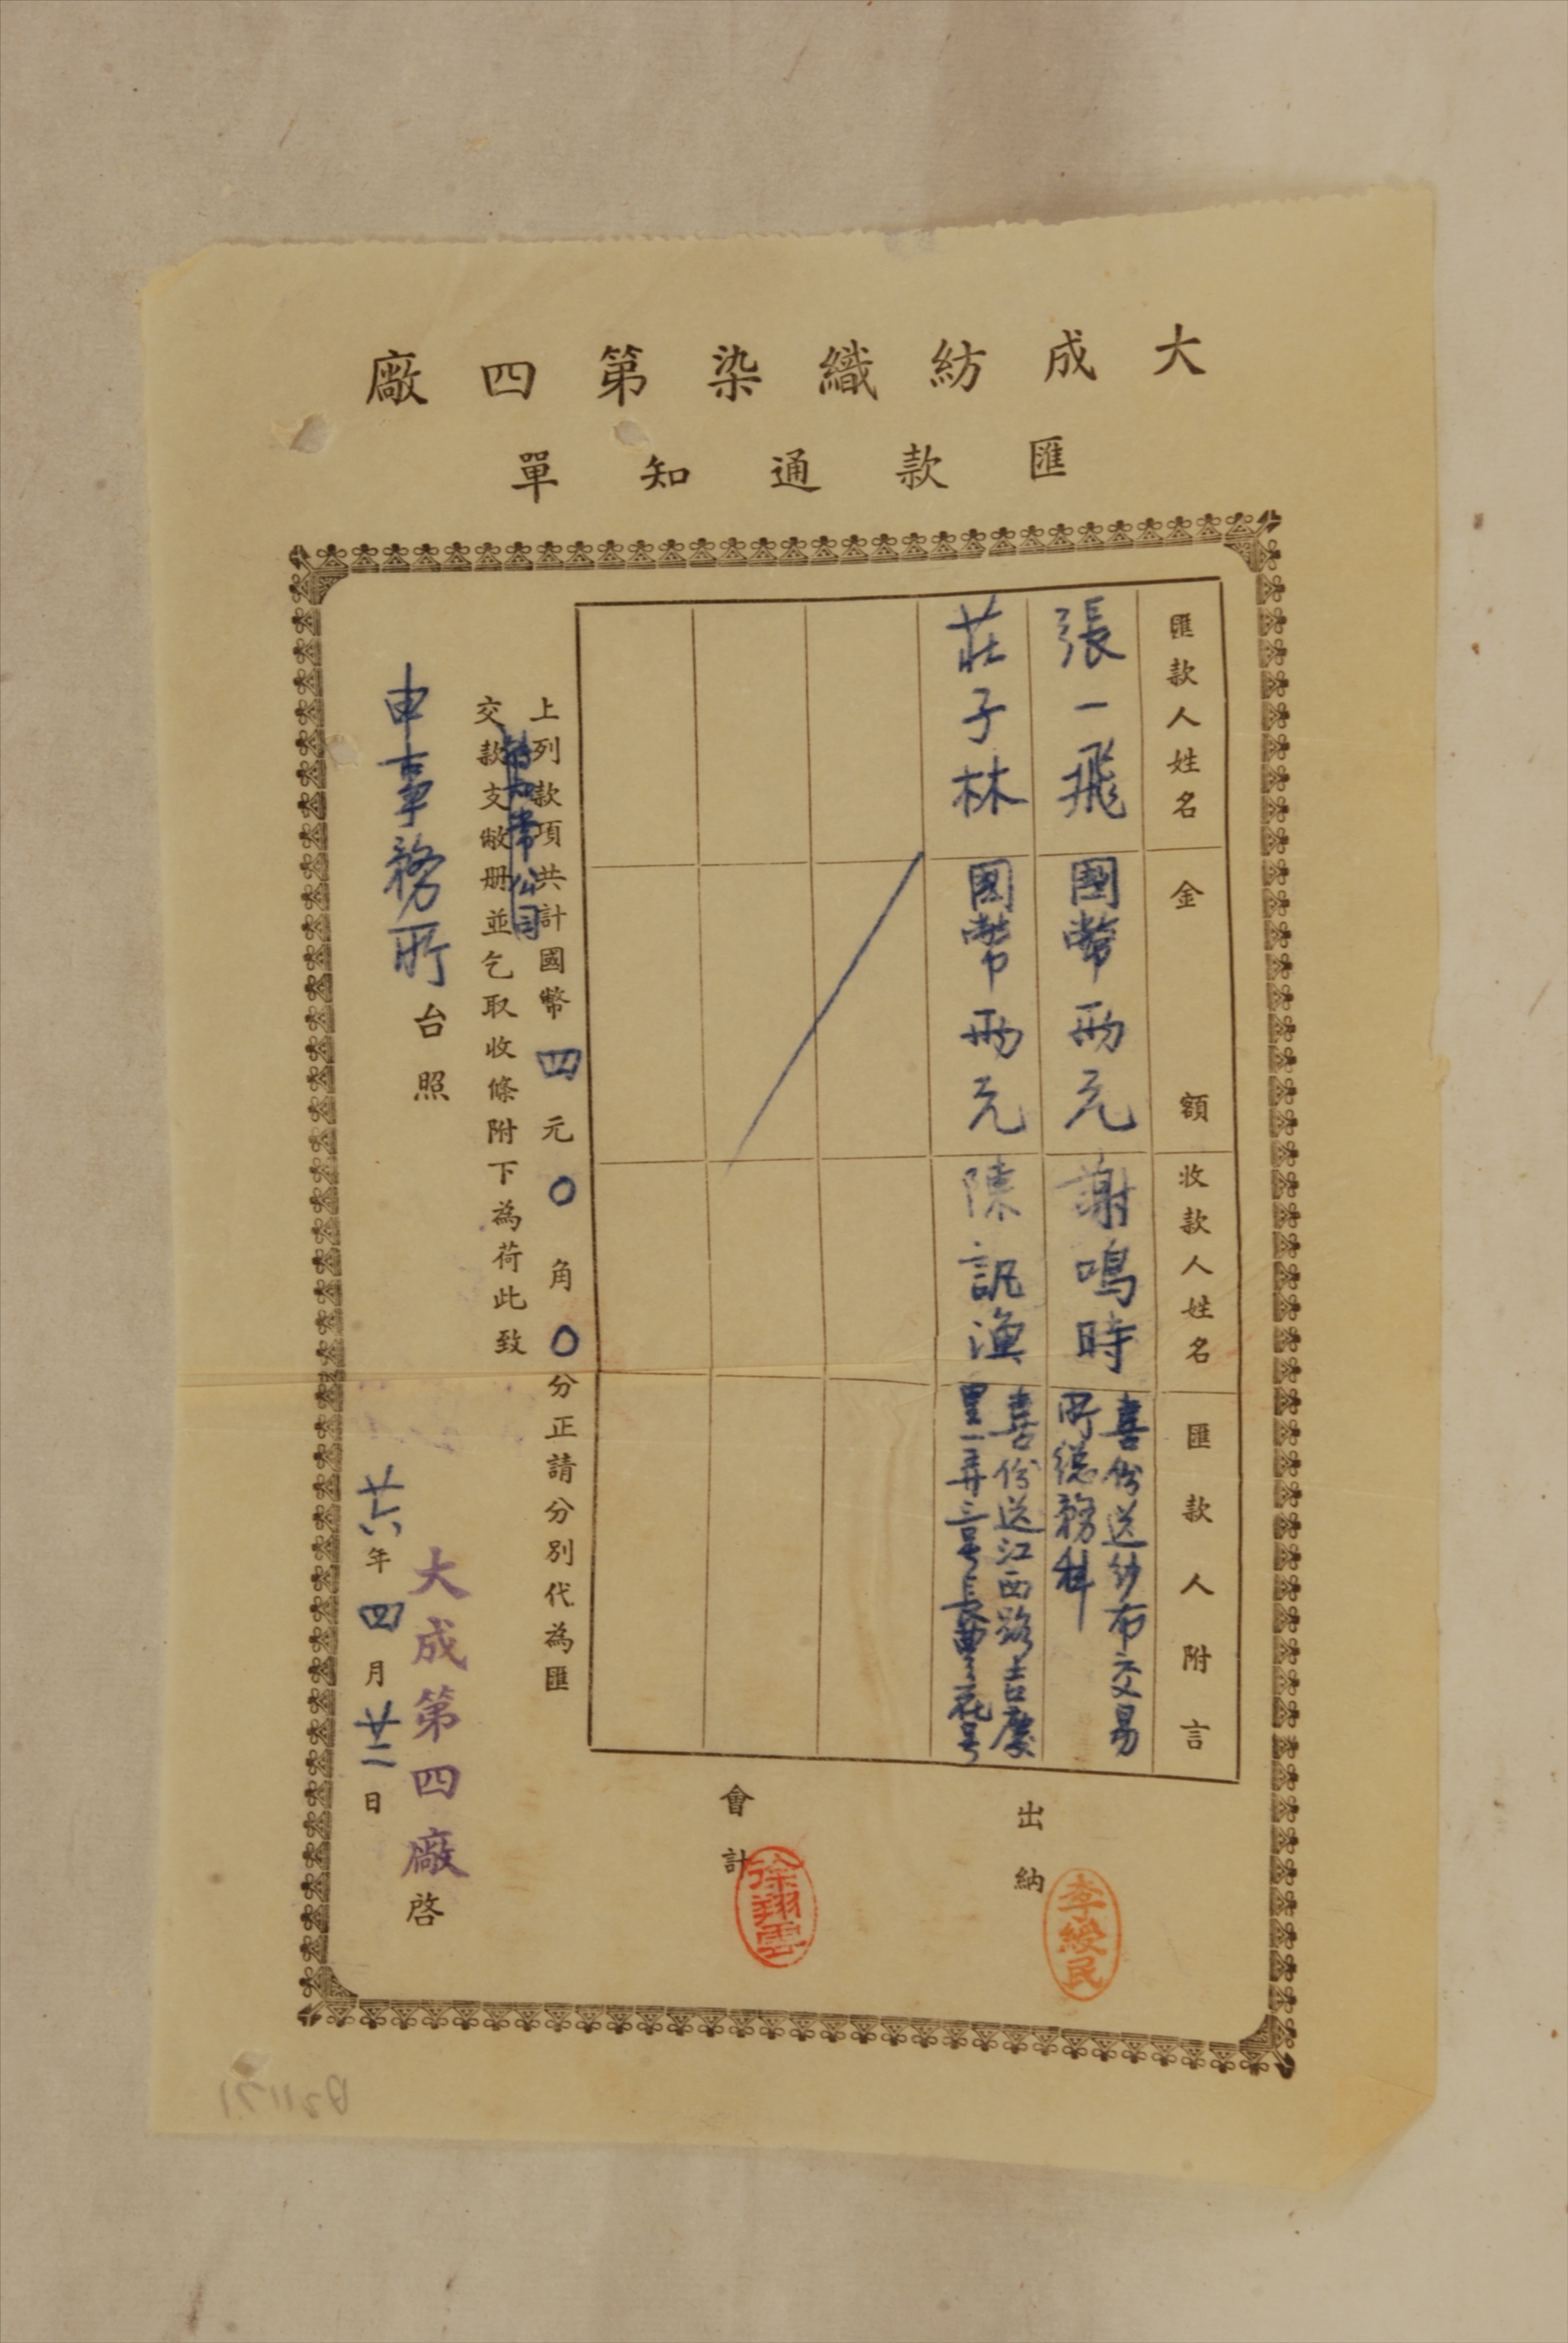 大成紡織染第四廠
匯款通知單
匯款人姓名 金額 收款人姓名 匯款人附言
張一飛 國幣兩元 謝鳴時 喜份送紗布交易
所總務科
莊子林 國幣兩元 陳訊漁 喜份送江西路吉慶
里一弄三号長豐花号
上列款項共計國幣四元〇角〇分正請分別代為匯
交款支敝册並乞取收條附下為荷此致
申事務所台照
大成第四廠啓
廿六年四月廿二日
出納
李綬民
會計
徐翔雲